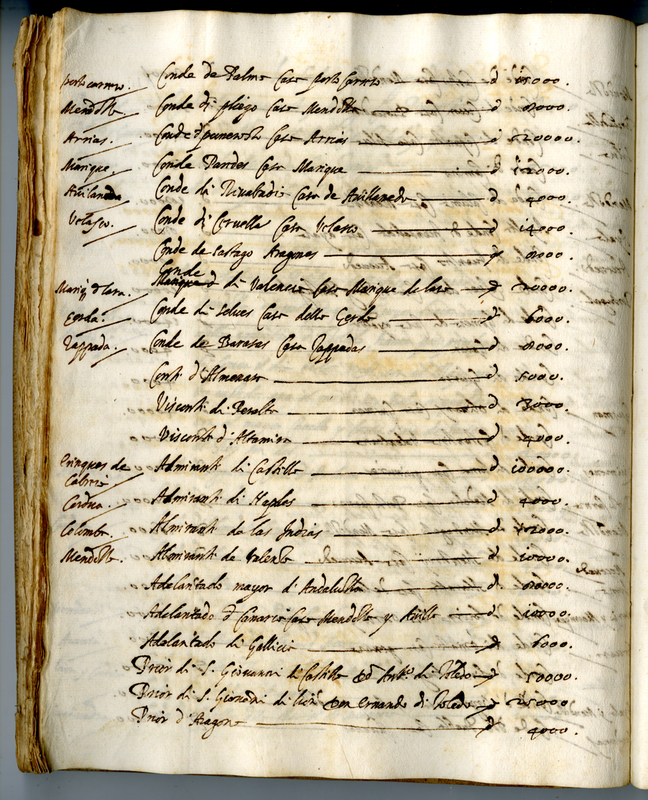 Portocarrero. Conde de Palma Casa porto Carrero d 15000.
Mendozza Conde di pliego Casa Mendozza d 8000.
Arrias. Conde Casa Arrias d 120000.
Manrique, Conde Paredes Casa Manrique d 12000.
Avilaneda Conde di Rivadavia Casa de Avillaneda d 4000.
Velasco. Conde di Ciruella Casa Velasco d 14000.
Conde de Castago Aragones d 8000.
Manriq d Lara. Conde di Valencia Casa Manrique de Lara d 20000.
Cerda. Conde di Selves Casa della Cerda d 6000.
Zappada. Conde de Baraxas Casa Zappadas d 8000.
Conte d'Almenara d 5000.
Visconte di Peralta d 3000.
Visconte d'Altamira d 4000.
Enriques de Cabrera. Admirante di Castilla d 100000.
Cardona. Admirante di Naples d 4000.
Colombo. Almirante de las Indias d 12000.
Mendozza. Almirante de Valenza d 10000.
Adelantado mayor d'Andaluzia d 80000.
Adelantado d Canaria Casa Mendozza y Avilla d 10000.
Adelantado di Gallicia d 6000.
Prior di S. Giovanni di Castilla di Toledo d 50000.
Prior di S. Giovanni di lion Don Ernando di Toledo d 25000.
Prior d'Aragona d 4000.